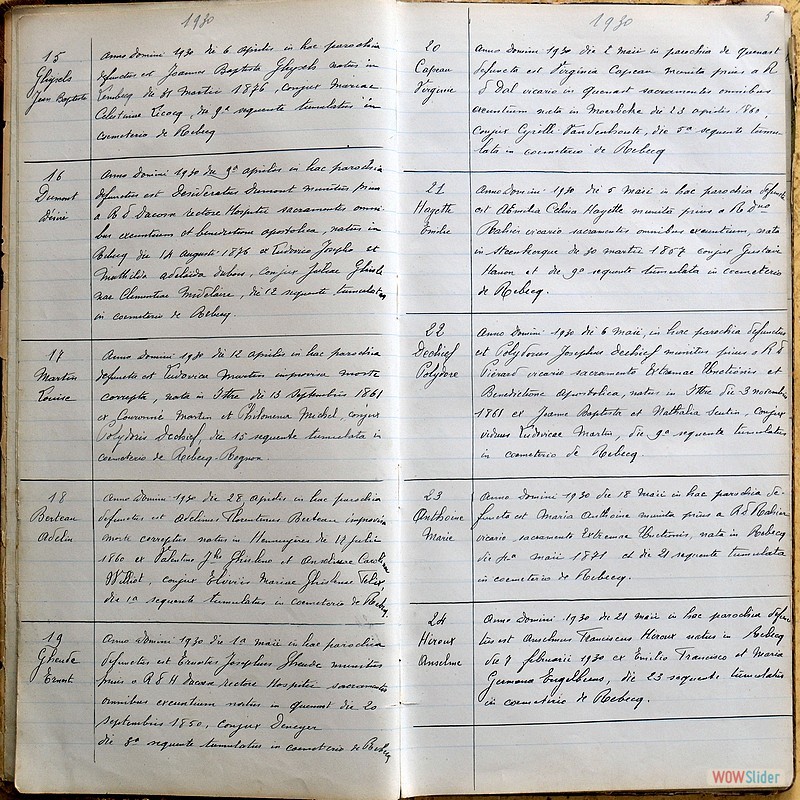 1930
15
Ghysels
Jean Baptiste
Anno Domini 1930 die 6 aprilis in hac parochia
defunctus est Joannes Baptista Ghysels natus in
die 21 martii 1876, conjux Mariae
Celestinae Licocq, die 9a sequente tumulatus in
coemeterio de Rebecq
16
Dumont
Désiré
Anno Domini 1930 die 9a aprilis in hac parochia
defunctus est Desideratus Dumont munitus prius
a R D Dacosse rectore Hospitii sacramentis omni-
bus exeuntium et benedictione apostolica, natus in
Rebecq die 14 augusti 1876 ex Ludovico Josepho et
Mathilda Adelaida Dubois, conjux Juliae Ghisle
nae Clementiae Midelaire, die 12 sequente tumulatus
in coemeterio de Rebecq.
18
Martin
Louise
Anno Domini 1930 die 12 aprilis in hac parochia
defuncta est Ludovica Martin improvisa morte
correpta, nata in Ittre die 13 septembris 1861
ex Martin et Philomena Michel, conjux
Polydoris Dechief, die 15 sequente tumulata in
coemeterio de Rebecq-Rognon.
18
Berteau
Adelin
Anno Domini 1930 die 28 aprilis in hac parochia
defunctus est Adelinus Florentinus Berteau improvisa
morte correptus natus in Hennuyères die 14 julii
1860 ex Valentino Jho Ghisleno et Angelinae Carol
conjux Elviris Mariae Ghislenae Felix
die 1a sequente tumulatus in coemeterio de Rebecq
19
Gheude
Ernest
Anno Domini 1930 die 1a maii in hac parochia
defunctus est Ernestus Josephus Gheude munitus
prius a R D H Dacosse rectore Hospitii sacramentis
omnibus exeuntium natus in Quenast die 20
septembris 1850, conjux Deneyer
die 3a sequente tumulatus in coemeterio de Rebecq
1930
5
20
Capeau
Virginie
Anno Domini 1930 die 2 maii in parochia de Quenast
defuncta est Virginia Capeau munita prius a R
D Dal vicario in Quenast sacramentis omnibus
exeuntium nata in Moerbeke die 23 aprilis 1860,
conjux Cyrilli Vandenhoute, die 5a sequente tumu-
lata in coemeterio de Rebecq
21
Hayette
Emilie
Anno Domini 1930 die 5 maii in hac parochia defuncta
est Aemilia Celina Hayette munita prius a R Dno
Rahier vicario sacramentis omnibus exeuntium, nata
in Steenkerque die 30 martii 1857 conjux Gustavi
Hanon et die 9a sequente tumulata in coemeterio
de Rebecq.
22
Dechief
Polydore
Anno Domini 1930 die 6 maii, in hac parochia defunctus
est Polydorus Josephus Dechief munitus prius a R D
Piérard vicario sacramento Extremae Unctionis et
Benedictione apostolica, natus in Ittre die 3 novembris
1861 ex Joanne Baptista et Nathalia Seutin, conjux
viduus Ludovicae Martin, die 9a sequente tumulatus
in coemeterio de Rebecq.
23
Anthoine
Marie
Anno Domini 1930 die 18 maii in hac parochia de-
functa est Maria Anthoine munita prius a R D Rahier
vicario, sacramento Extremae Unctionis, nata in Rebecq
die maii 1871 et die 21 sequente tumulata
in coemeterio de Rebecq.
24
Hiroux
Anselme
Anno Domini 1930 die 21 maii in hac parochia defunc
tus est Anselmus Franciscus Hiroux natus in Rebecq
die 7 februarii 1930 ex Emilio Francisco et Maria
Germana Engelbeens, die 23 sequente tumulatus
in coemeterio de Rebecq.
WOWSlider